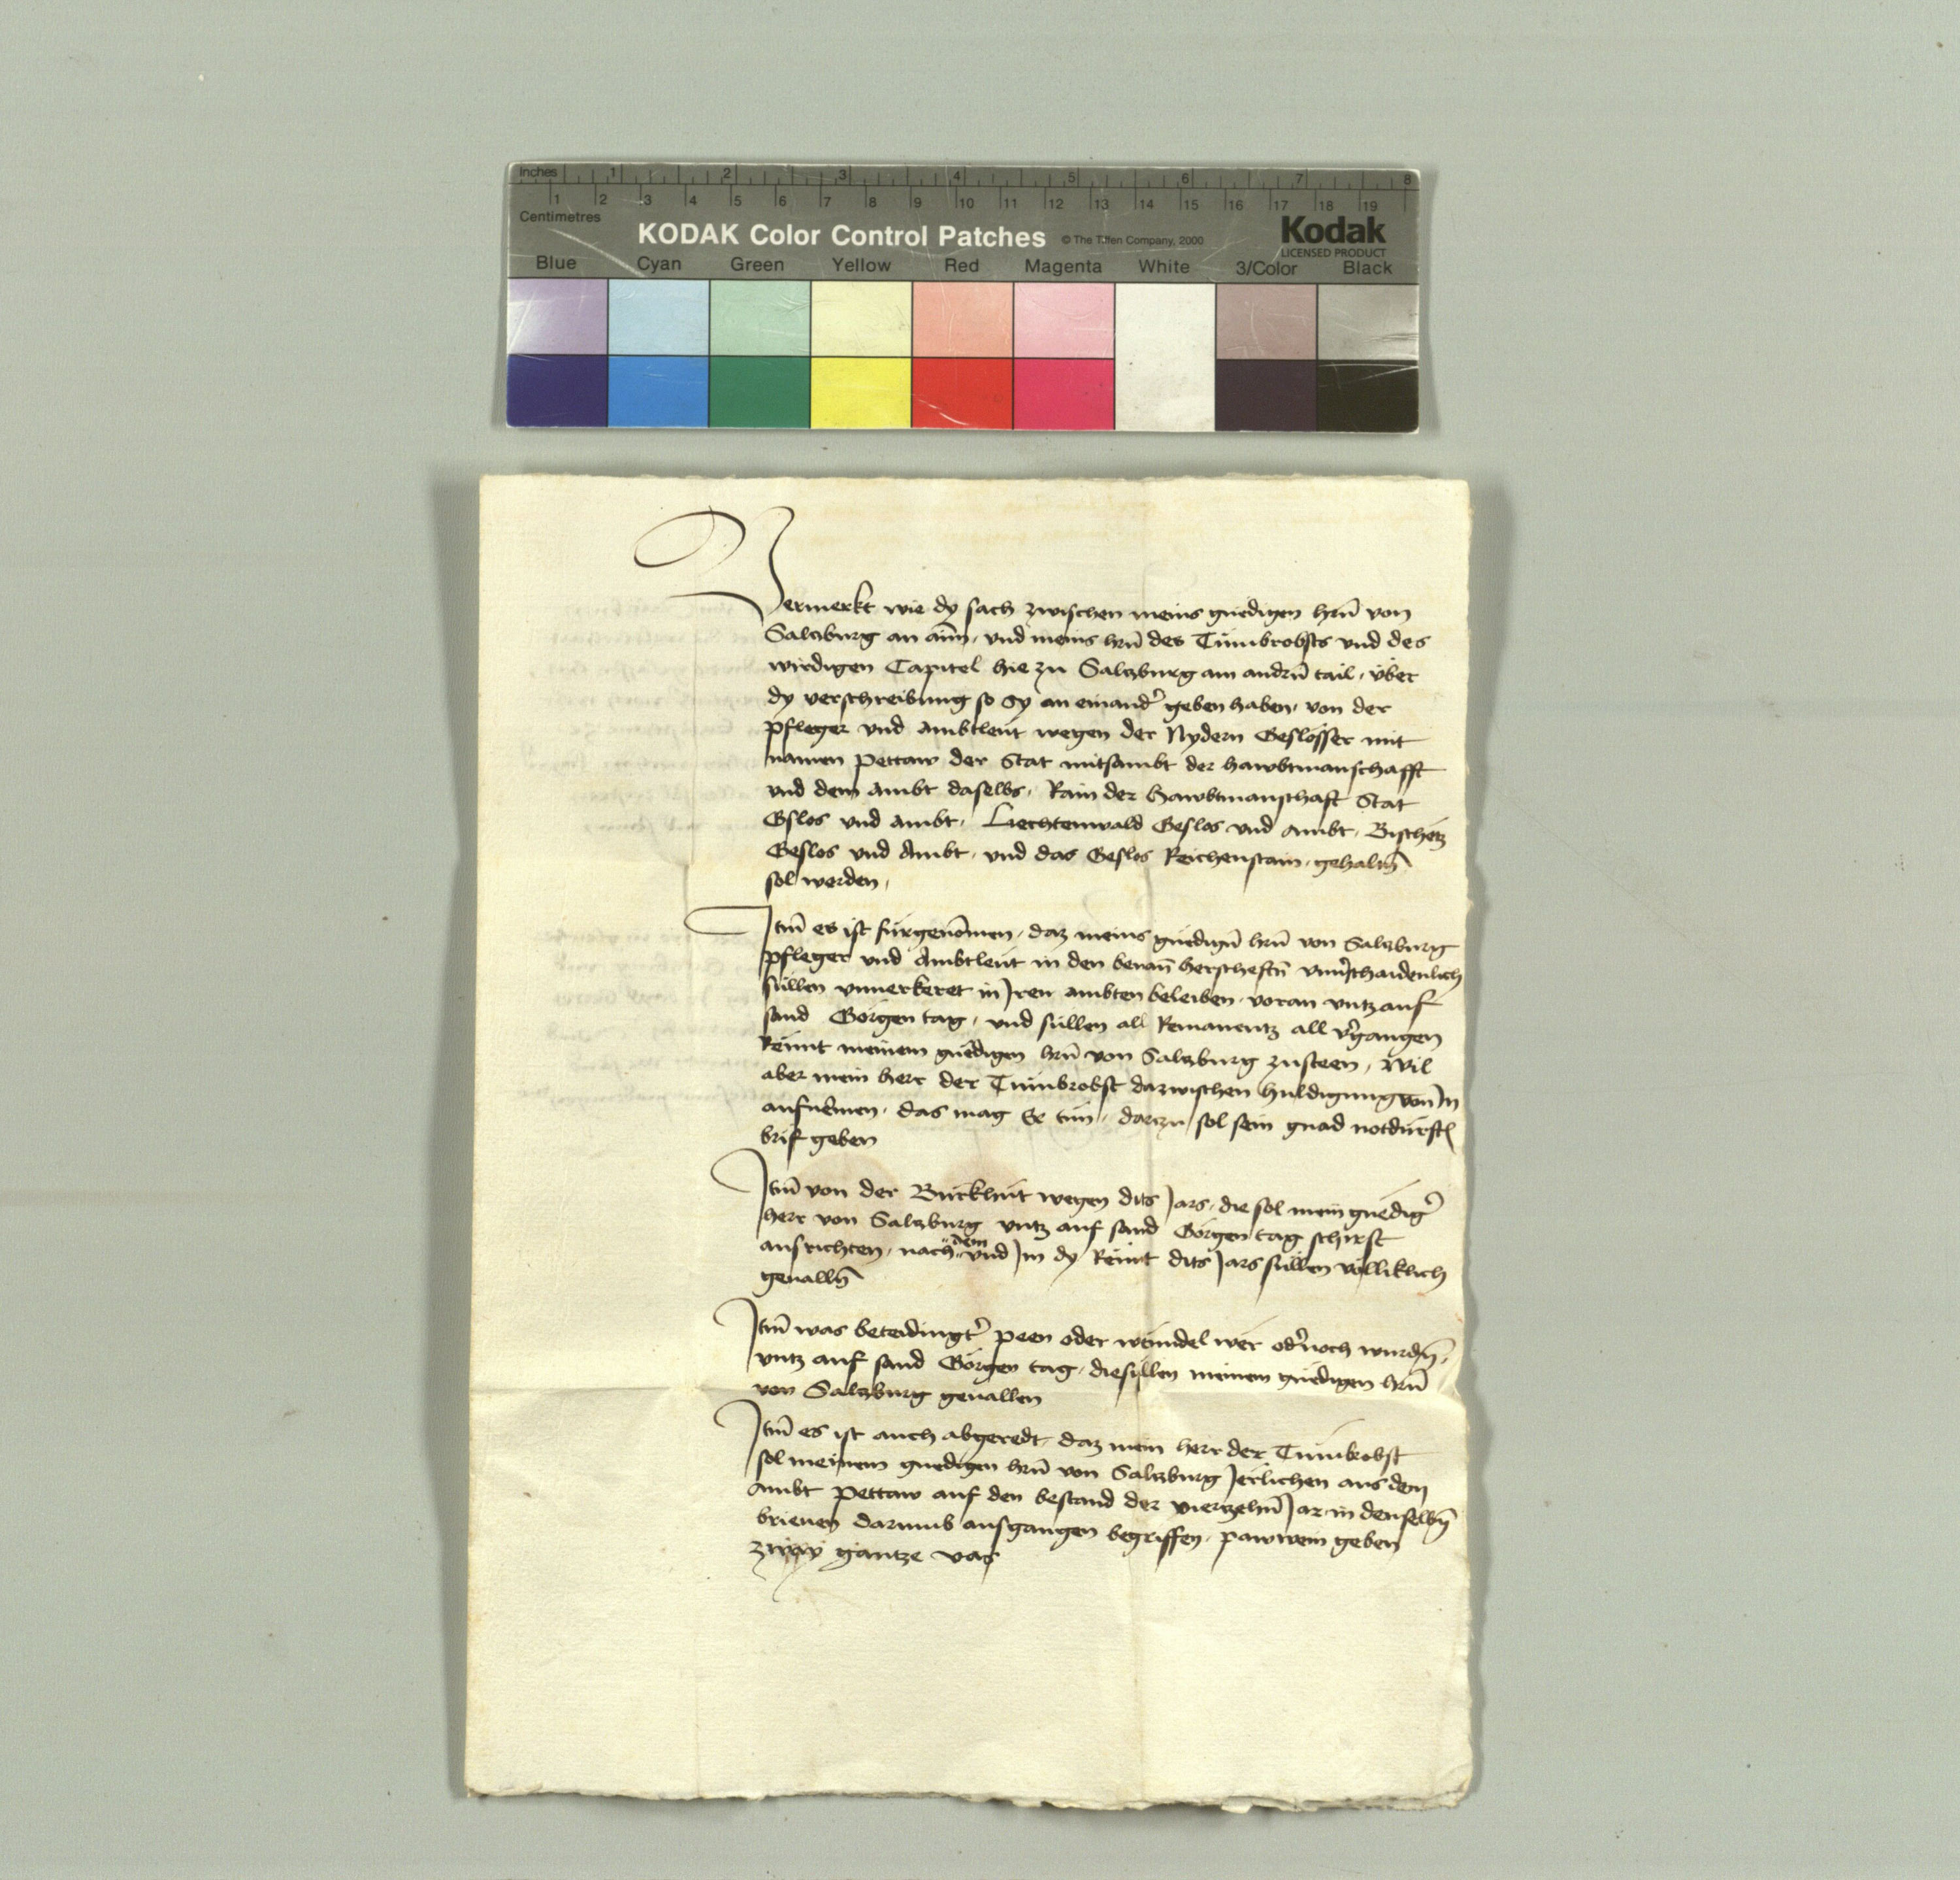 Inches 1 2 3 4 5 6 7 8
1 2 3 4 5 6 7 8 9 10 11 12 13 14 15 16 17 18 19
Centimetres
KODAK Color Control Patches © The Tiffen Company, 2000 Kodak
LICENSED PRODUCT
Blue Cyan Green Yellow Red Magenta White 3/Color Black
Vermerkt wie dy sach zwischen meins gnedigen hrn̄ von
Salczburg an aim̄, vnd meins hrn̄ des Tumbrobsts vnd des
wirdigen Capitel hie zu Salczburg am andrn̄ tail, über
dy verschreibung so Sy an einand' geben haben, von der
pfleger vnd ambtleut wegen der Nydern Geslösser mit
namen pettaw der Stat mitsambt der hawbtmanschafft
vnd dem ambt daselbs, Rain der hawbtmanschaft Stat
Gslos vnd ambt, Liechtenwald Geslos vnd ambt, Vischetz
Geslos vnd Ambt, vnd das Geslos Reichenstain, gehaltn̄
sol werden,
Itm̄ es ist fürgenōmen, daz meins gnedign̄ hrn̄ von Salczburg
pfleger vnd Ambtleut in den benan̄ herscheftn̄ vnu'schaidenlich
süllen vnuerkeret in Iren ambten beleiben, voran vntz auf
sand Görgen tag, vnd süllen all Remanentz all v'gangen
Rennt meinem gnedigen hrn̄ von Salczburg zusteen, Wil
aber mein herr der Tumbrobst dazwischen huldigung von In
aufnemen, das mag Er tun, darzu sol sein gnad notdurft
brif geben
Itm̄ von der Burkhut wegen dits Jars, die sol mein gnedig'
herr von Salczburg vntz auf sand Görgen tag schirst
ausrichten, nach dem vnd Im dy Rennt dits Jars süllen völliklich
geualln̄
Itm̄ was beteidingt' peen oder wenndel wer od' noch wurdn̄,
vntz auf sand Görgen tag, die süllen meinem gnedigen hrn̄
von Salczburg geuallen
Itm̄ es ist auch abgeredt, daz mein herr der Tumbrobst
sol meinem gnedigen hrn̄ von Salczburg Jerlichen aus dem
ambt pettaw auf den bestand der vierzehn̄ Jar in denselbn̄
brieuen darumb ausgangen begriffen, pawwein geben
zway gantze vas